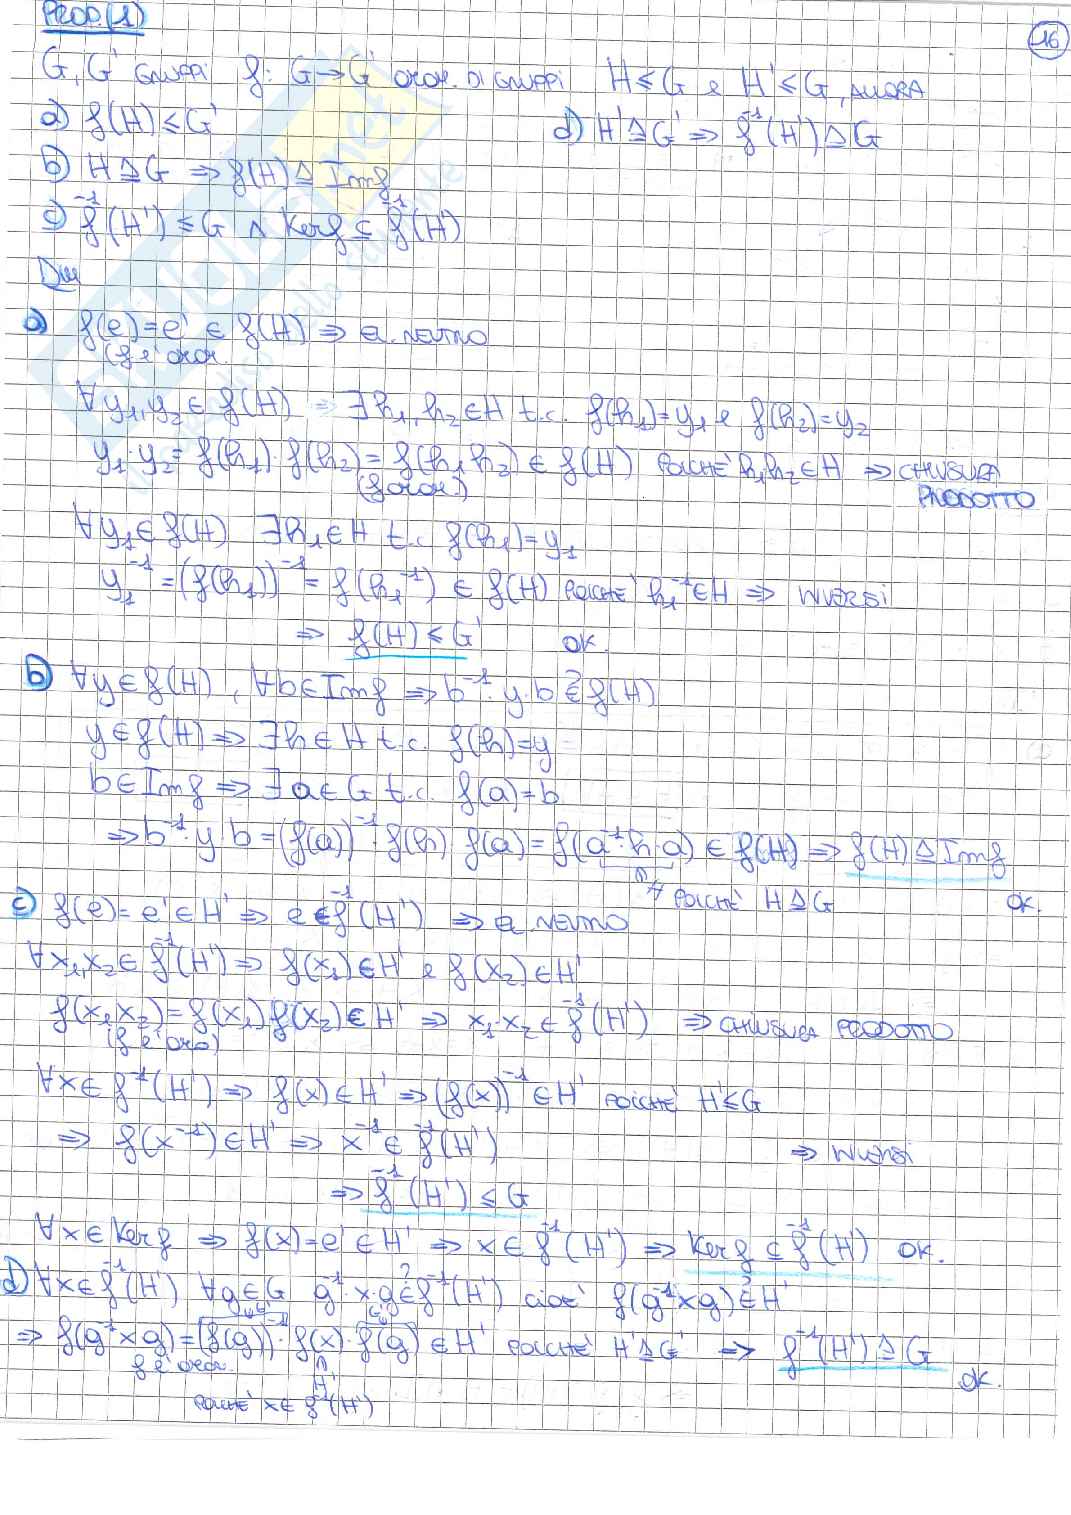 PROP. (1)
16
G, G' GRUPPI f: G→G' OMOM. DI GRUPPI H ≤ G e H' ≤ G', ALLORA
a) f(H) ≤ G'
d) H' ⊴ G' ⇒ f⁻¹(H') ⊴ G
b) H ⊴ G ⇒ f(H) ⊴ Im f
c) f⁻¹(H') ≤ G ∧ Ker f ⊆ f⁻¹(H')
Dim
a) f(e) = e' ∈ f(H) ⇒ el. NEUTRO
(f è omom.
∀ y₁, y₂ ∈ f(H) ⇒ ∃ h₁, h₂ ∈ H t.c. f(h₁) = y₁ e f(h₂) = y₂
y₁·y₂ = f(h₁)·f(h₂) = f(h₁h₂) ∈ f(H) POICHÈ h₁h₂ ∈ H ⇒ CHIUSURA
(f omom.) PRODOTTO
∀ y₁ ∈ f(H) ∃ h₁ ∈ H t.c. f(h₁) = y₁
y₁⁻¹ = (f(h₁))⁻¹ = f(h₁⁻¹) ∈ f(H) POICHÈ h₁⁻¹ ∈ H ⇒ INVERSI
⇒ f(H) ≤ G' OK.
b) ∀ y ∈ f(H), ∀ b ∈ Im f ⇒ b⁻¹·y·b ∈? f(H)
y ∈ f(H) ⇒ ∃ h ∈ H t.c. f(h) = y
b ∈ Im f ⇒ ∃ a ∈ G t.c. f(a) = b
⇒ b⁻¹·y·b = (f(a))⁻¹·f(h) f(a) = f(a⁻¹·h·a) ∈ f(H) ⇒ f(H) ⊴ Im f
∩ H POICHÈ H ⊴ G OK.
c) f(e) = e' ∈ H' ⇒ e ∈ f⁻¹(H') ⇒ el. NEUTRO
∀ x₁, x₂ ∈ f⁻¹(H') ⇒ f(x₁) ∈ H' e f(x₂) ∈ H'
f(x₁x₂) = f(x₁) f(x₂) ∈ H' ⇒ x₁·x₂ ∈ f⁻¹(H') ⇒ CHIUSURA PRODOTTO
(f è omo)
∀ x ∈ f⁻¹(H') ⇒ f(x) ∈ H' ⇒ (f(x))⁻¹ ∈ H' POICHÈ H' ≤ G
⇒ f(x⁻¹) ∈ H' ⇒ x⁻¹ ∈ f⁻¹(H') ⇒ INVERSI
⇒ f⁻¹(H') ≤ G
∀ x ∈ Ker f ⇒ f(x) = e' ∈ H' ⇒ x ∈ f⁻¹(H') ⇒ Ker f ⊆ f⁻¹(H') OK.
d) ∀ x ∈ f⁻¹(H') ∀ g ∈ G g⁻¹·x·g ∈? f⁻¹(H') cioè f(g⁻¹xg) ∈? H'
⇒ f(g⁻¹xg) = (f(g))⁻¹·f(x)·f(g) ∈ H' POICHÈ H' ⊴ G' ⇒ f⁻¹(H') ⊴ G
f è omom. ∩ H' OK.
POICHÈ x ∈ f⁻¹(H')